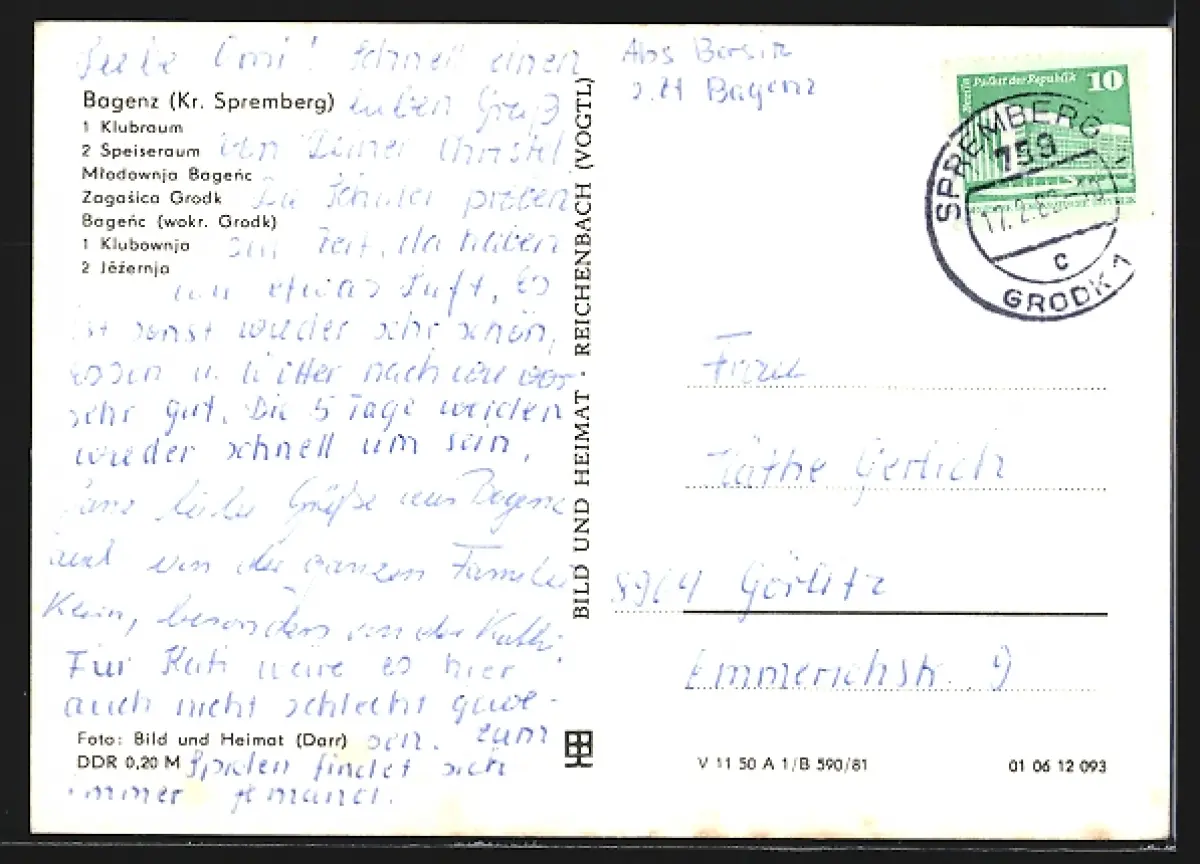 Liebe Omi! Schnell einen
Bagenz (Kr. Spremberg)
lieben Gruß
1 Klubraum
2 Speiseraum
von Deiner Christel
Młodownja Bageńc
Zagašica Grodk
Die Schüler proben
Bageńc (wokr. Grodk)
1 Klubownja
zur Zeit, da haben
2 Jěžernja
wir etwas Luft. Es
ist sonst wieder sehr schön,
Essen u. Wetter nach wie vor
sehr gut. Die 5 Tage werden
wieder schnell um sein.
Ganz liebe Grüße aus Bagenz
auch von der ganzen Familie
Klein, besonders von der Kathi.
Für Kati wäre es hier
auch nicht schlecht gewe-
sen. Zum
Foto: Bild und Heimat (Darr)
DDR 0,20 M
Spielen findet sich
immer jemand.
BILD UND HEIMAT · REICHENBACH (VOGTL)
Abs
z.Zt Bagenz
Berlin Palast der Republik 10
SPREMBERG 1
759
17.2.83
c
GRODK 1
Frau
Käthe Gerlich
8904 Görlitz
Emmerichstr. 9
V 11 50 A 1/B 590/81
01 06 12 093